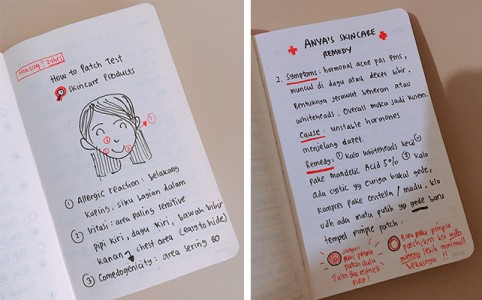 How to Patch Test
Skincare Products
① Allergic reaction : belakang
kuping, siku bagian dalam
② Iritasi : area paling sensitive
Pipi kiri, dagu kiri, bawah bibir
Kanan → chest area (easy to hide)
③ Comedogenicity : area sering BO
ANYA'S SKINCARE
REMEDY
2. Symptoms : hormonal acne pas pms,
muncul di dagu atau deket bibir.
Bentuknya jerawat beneran atau
whiteheads. Overall muka jadi kusem.
Cause : unstable hormones
menjelang dapet.
Remedy : ① Kalo whiteheads kecil
pake Mandelic Acid 5% ② Kalo
ada cystic yg curiga bakal gede,
kompres pake centella / madu, klo
udh ada mata putih yg gede baru
tempel pimple patch.
pimple
patch dulu
Baru pake pimple
patch, klo udh
lebih minimal
bekasnya !!